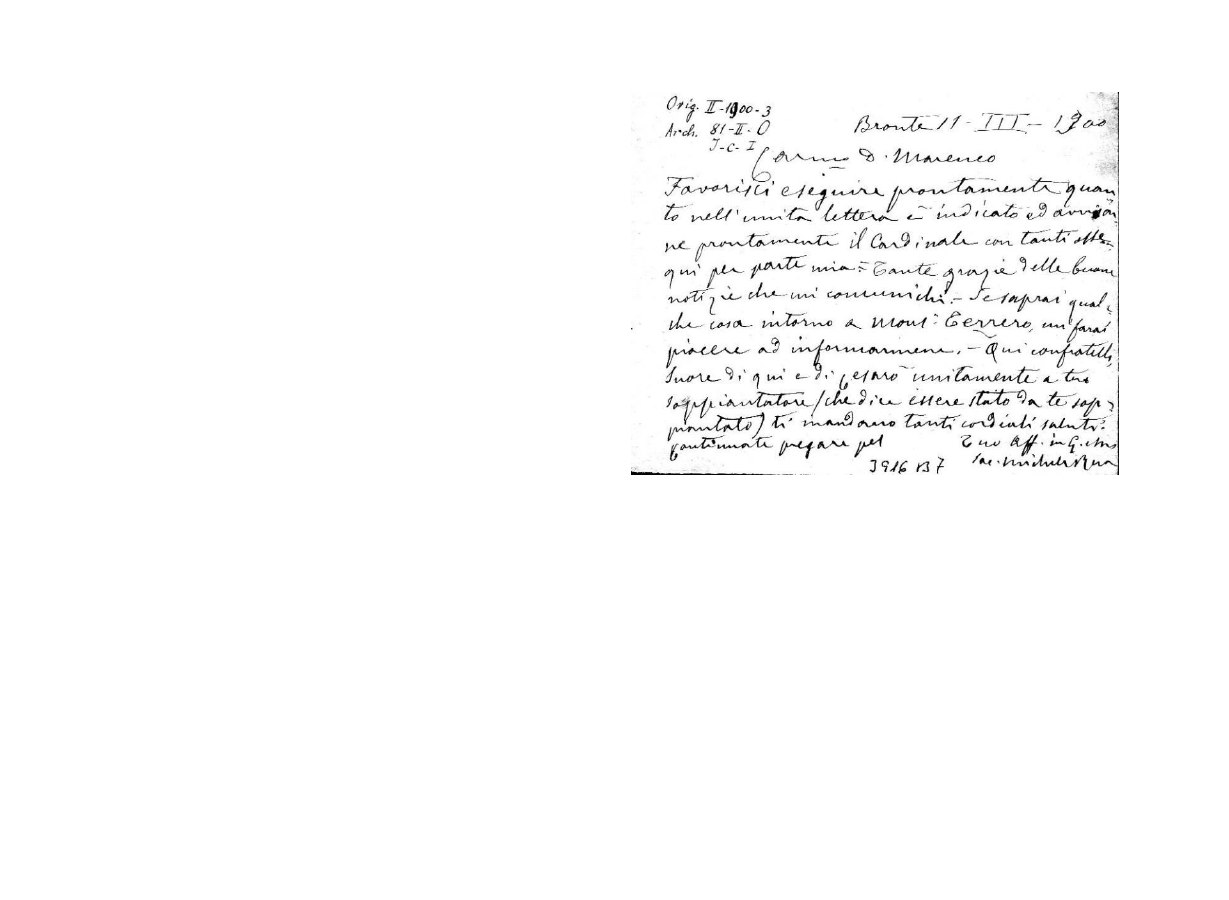 Orig. II-1900-3
Arch. 81-II-O
I-C-I
Bronte 11-III-1900
Carmo D. Marenco
Favorisci eseguire prontamente quan
to nell'unita lettera è indicato ed avvisar
ne prontamente il Cardinale con tanti osse-
qui per parte mia = Tante grazie delle buone
notizie che mi comunichi. - Se saprai qual-
che cosa intorno a Monsr Terrero, mi farai
piacere ad informarmene. - Qui confratelli,
Suore di qui e di Cesarò unitamente a tuo
soppiantatore (che dice essere stato da te sop-
piantato) ti mandano tanti cordiali saluti.
Continuate pregare pel
Tuo aff. in G. e M.
Sac. Michele Rua
3916 B7